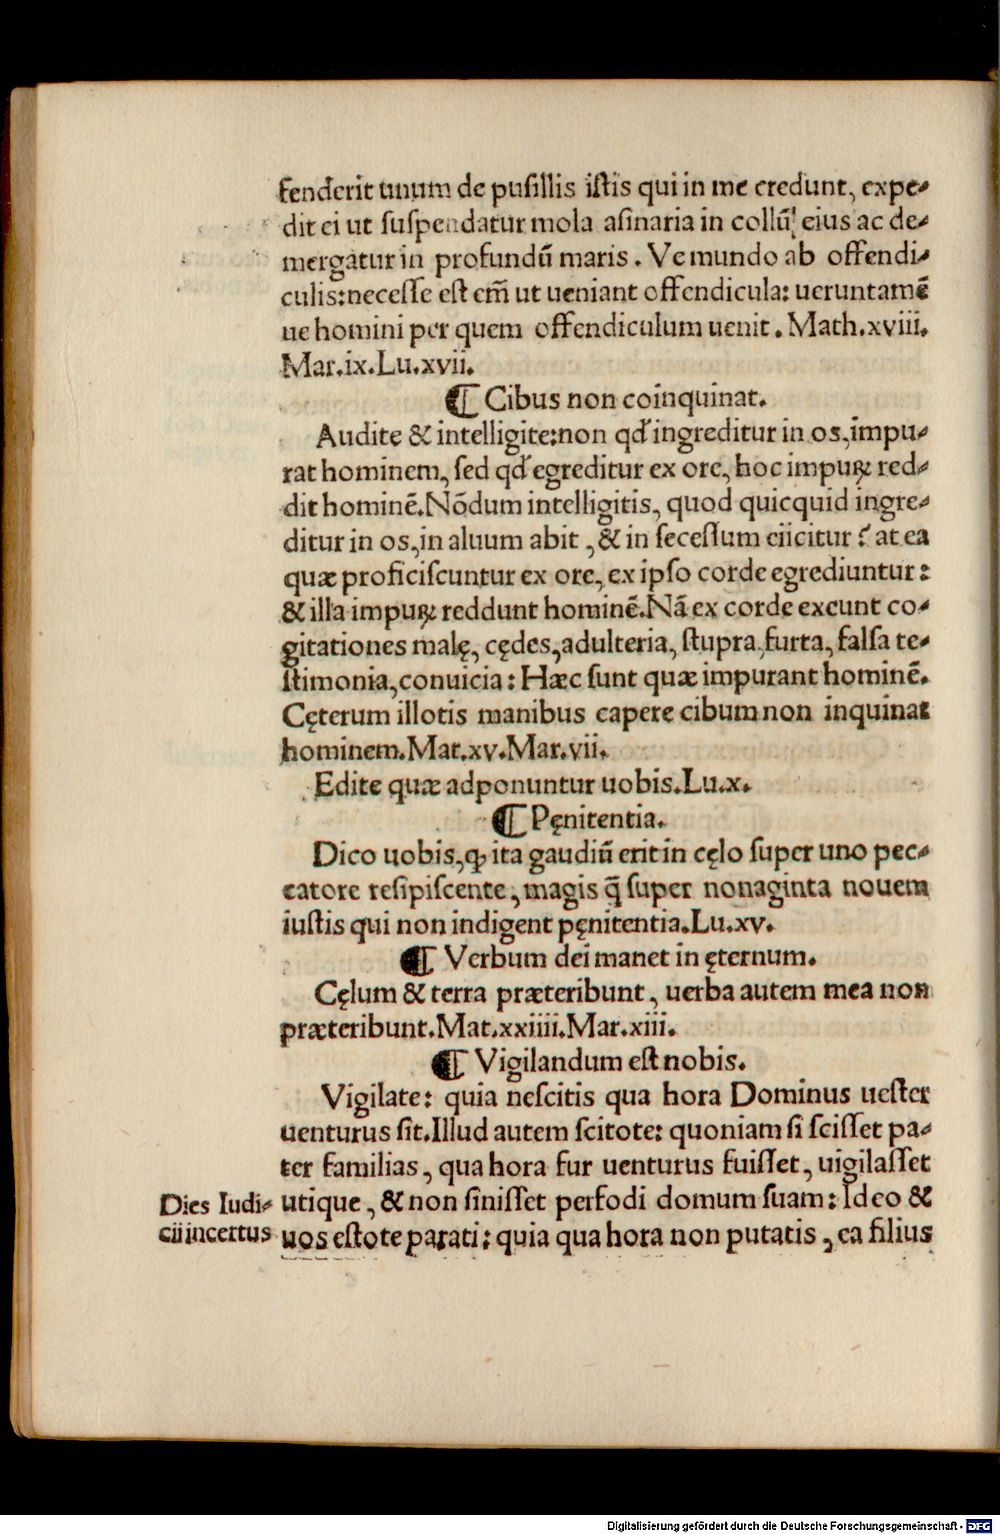 fenderit unum de pusillis istis qui in me credunt, expe-
dit ei ut suspendatur mola asinaria in collũ eius ac de-
mergatur in profundũ maris. Ve mundo ab offendi-
culis: necesse est em̃ ut ueniant offendicula: ueruntamẽ
ue homini per quem offendiculum uenit. Math. xviii.
Mar. ix. Lu. xvii.
¶ Cibus non coinquinat.
Audite & intelligite: non qd' ingreditur in os, impu-
rat hominem, sed qd' egreditur ex ore, hoc impuꝝ red-
dit hominẽ. Nõdum intelligitis, quod quicquid ingre-
ditur in os, in aluum abit, & in secessum eiicitur? at ea
quæ proficiscuntur ex ore, ex ipso corde egrediuntur:
& illa impuꝝ reddunt hominẽ. Nã ex corde exeunt co-
gitationes malę, cędes, adulteria, stupra, furta, falsa te-
stimonia, conuicia: Hæc sunt quæ impurant hominẽ.
Cęterum illotis manibus capere cibum non inquinat
hominem. Mat. xv. Mar. vii.
Edite quæ adponuntur uobis. Lu. x.
¶ Pęnitentia.
Dico uobis, ꝙ ita gaudiũ erit in cęlo super uno pec-
catore resipiscente, magis q̃ super nonaginta nouem
iustis qui non indigent pęnitentia. Lu. xv.
¶ Verbum dei manet in ęternum.
Cęlum & terra præteribunt, uerba autem mea non
præteribunt. Mat. xxiiii. Mar. xiii.
¶ Vigilandum est nobis.
Vigilate: quia nescitis qua hora Dominus uester
uenturus sit. Illud autem scitote: quoniam si scisset pa-
ter familias, qua hora fur uenturus fuisset, uigilasset
utique, & non sinisset perfodi domum suam: Ideo &
uos estote parati: quia qua hora non putatis, ea filius
Dies Iudi-
cii incertus
Digitalisierung gefördert durch die Deutsche Forschungsgemeinschaft - DFG